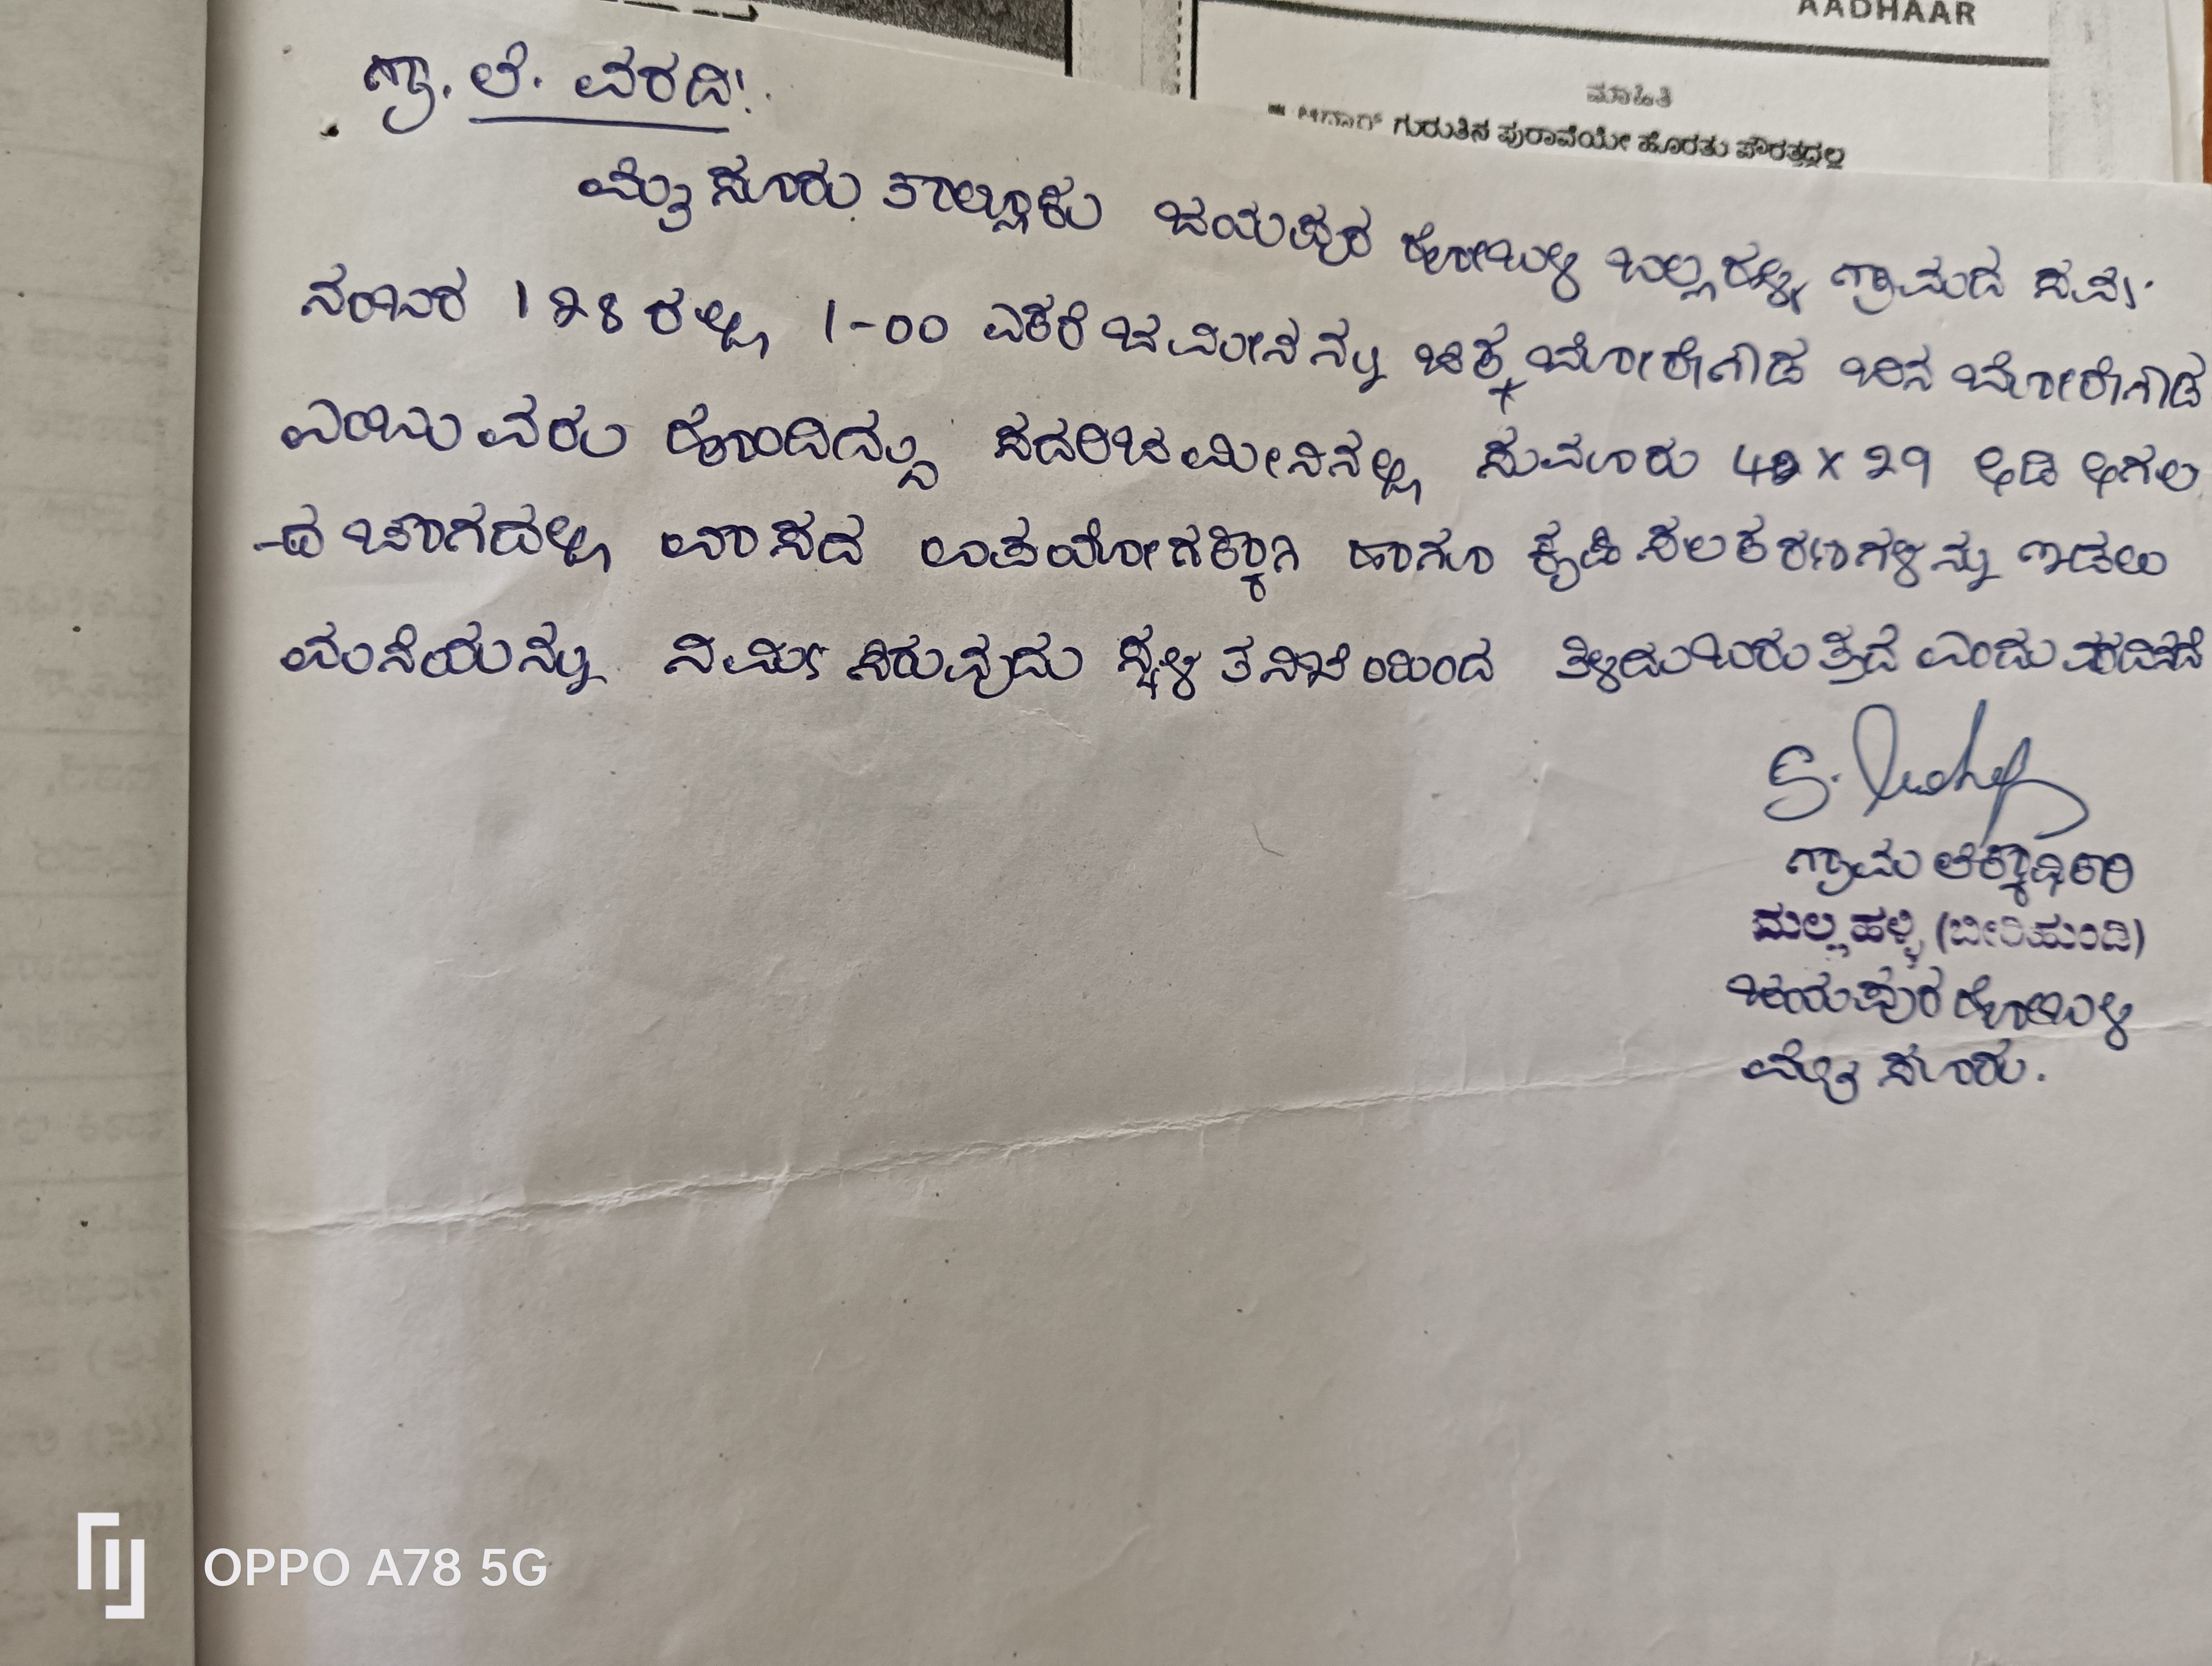 AADHAAR
ಮಾಹಿತಿ
ಗುರುತಿನ ಪುರಾವೆಯೇ ಹೊರತು ಪೌರತ್ವದ್ದಲ್ಲ
ಗ್ರಾ. ಲೆ. ವರದಿ:
ಮೈಸೂರು ತಾಲ್ಲೂಕು ಜಯಪುರ ಹೋಬಳಿ ಬಲ್ಲಹಳ್ಳಿ ಗ್ರಾಮದ ಸರ್ವೆ
ನಂಬರ 128 ರಲ್ಲಿ 1-00 ಎಕರೆ ಜಮೀನನ್ನು ಚಿಕ್ಕಬೋರೇಗೌಡ ಬಿನ್ ಬೋರೇಗೌಡ
ಎಂಬುವರು ಹೊಂದಿದ್ದು ಸದರಿ ಜಮೀನಿನಲ್ಲಿ ಸುಮಾರು 42 x 29 ಅಡಿ ಅಗಲ
-ದ ಜಾಗದಲ್ಲಿ ವಾಸದ ಉಪಯೋಗಕ್ಕಾಗಿ ಹಾಗೂ ಕೃಷಿ ಸಲಕರಣೆಗಳನ್ನು ಇಡಲು
ಮನೆಯನ್ನು ನಿರ್ಮಿಸಿರುವುದು ಸ್ಥಳ ತನಿಖೆಯಿಂದ ತಿಳಿದುಬರುತ್ತದೆ ಎಂದು ವರದಿಸಿದೆ
ಗ್ರಾಮ ಲೆಕ್ಕಾಧಿಕಾರಿ
ಮಲ್ಲಹಳ್ಳಿ (ಬೀರಿಹುಂಡಿ)
ಜಯಪುರ ಹೋಬಳಿ
ಮೈಸೂರು.
OPPO A78 5G